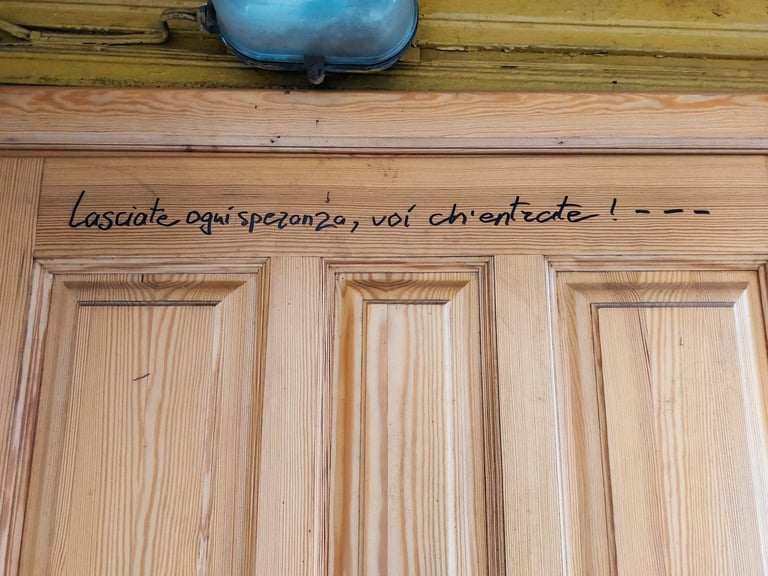 Lasciate ogni speranza, voi ch'entrate! ---